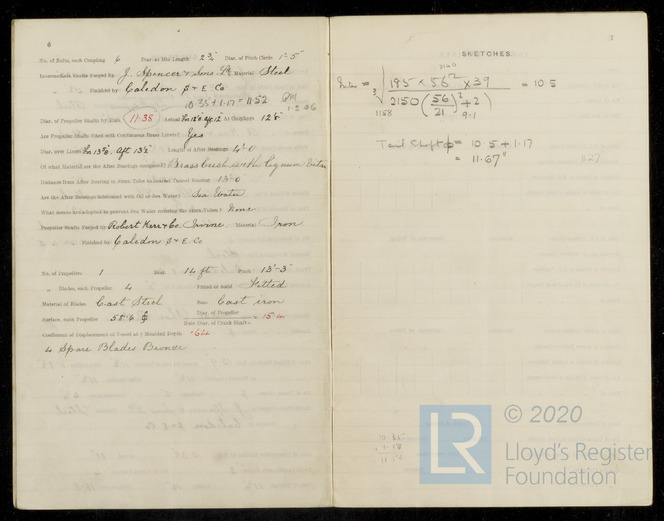 6
No. of Bolts, each Coupling 6 Diar. at Mid Length 2¾ Diar. of Pitch Circle 1'-5"
Intermediate Shafts Forged by J. Spencer & Sons Ld Material Steel
Finished by Caledon S & E Co
10.35 + 1.17 = 11.52
Diar. of Propeller Shafts by Rule 11.38 Actual At Couplings 12⅝
Are Propeller Shafts fitted with Continuous Brass Liners? Yes
Diar. over Liners For 13⅝ Aft 13½ Length of After Bearings 4'-0
Of what Material are the After Bearings composed? Brass Bush with Lignum Vitae
Distance from After Bearing in Stern Tube to Tunnel Bearing 13'-0
Are the After Bearings lubricated with Oil or Sea Water? Sea Water
What means are adopted to prevent Sea Water entering the Stern Tubes? None
Propeller Shafts Forged by Robert Kerr & Co. Irvine Material Iron
Finished by Caledon S & E. Co
No. of Propellers 1 Diar. 14 ft Pitch 13'-3"
" Blades, each Propeller 4 Fitted or Solid Fitted
Material of Blades Cast Steel Boss Cast iron
Surface, each Propeller 58 Diar. of Propeller
Ratio Diar. of Crank Shaft = 15
Coefficient of Displacement of Vessel at ¾ Moulded Depth .64
4 Spare Blades Bronze
SKETCHES.
3√ 195 × 56² × 39 = 10.5
2150 ((56/21)² + 2)
9.1
1158
Tail Shaft = 10.5 + 1.17
= 11.67"
© 2020
LR Lloyd's Register
Foundation